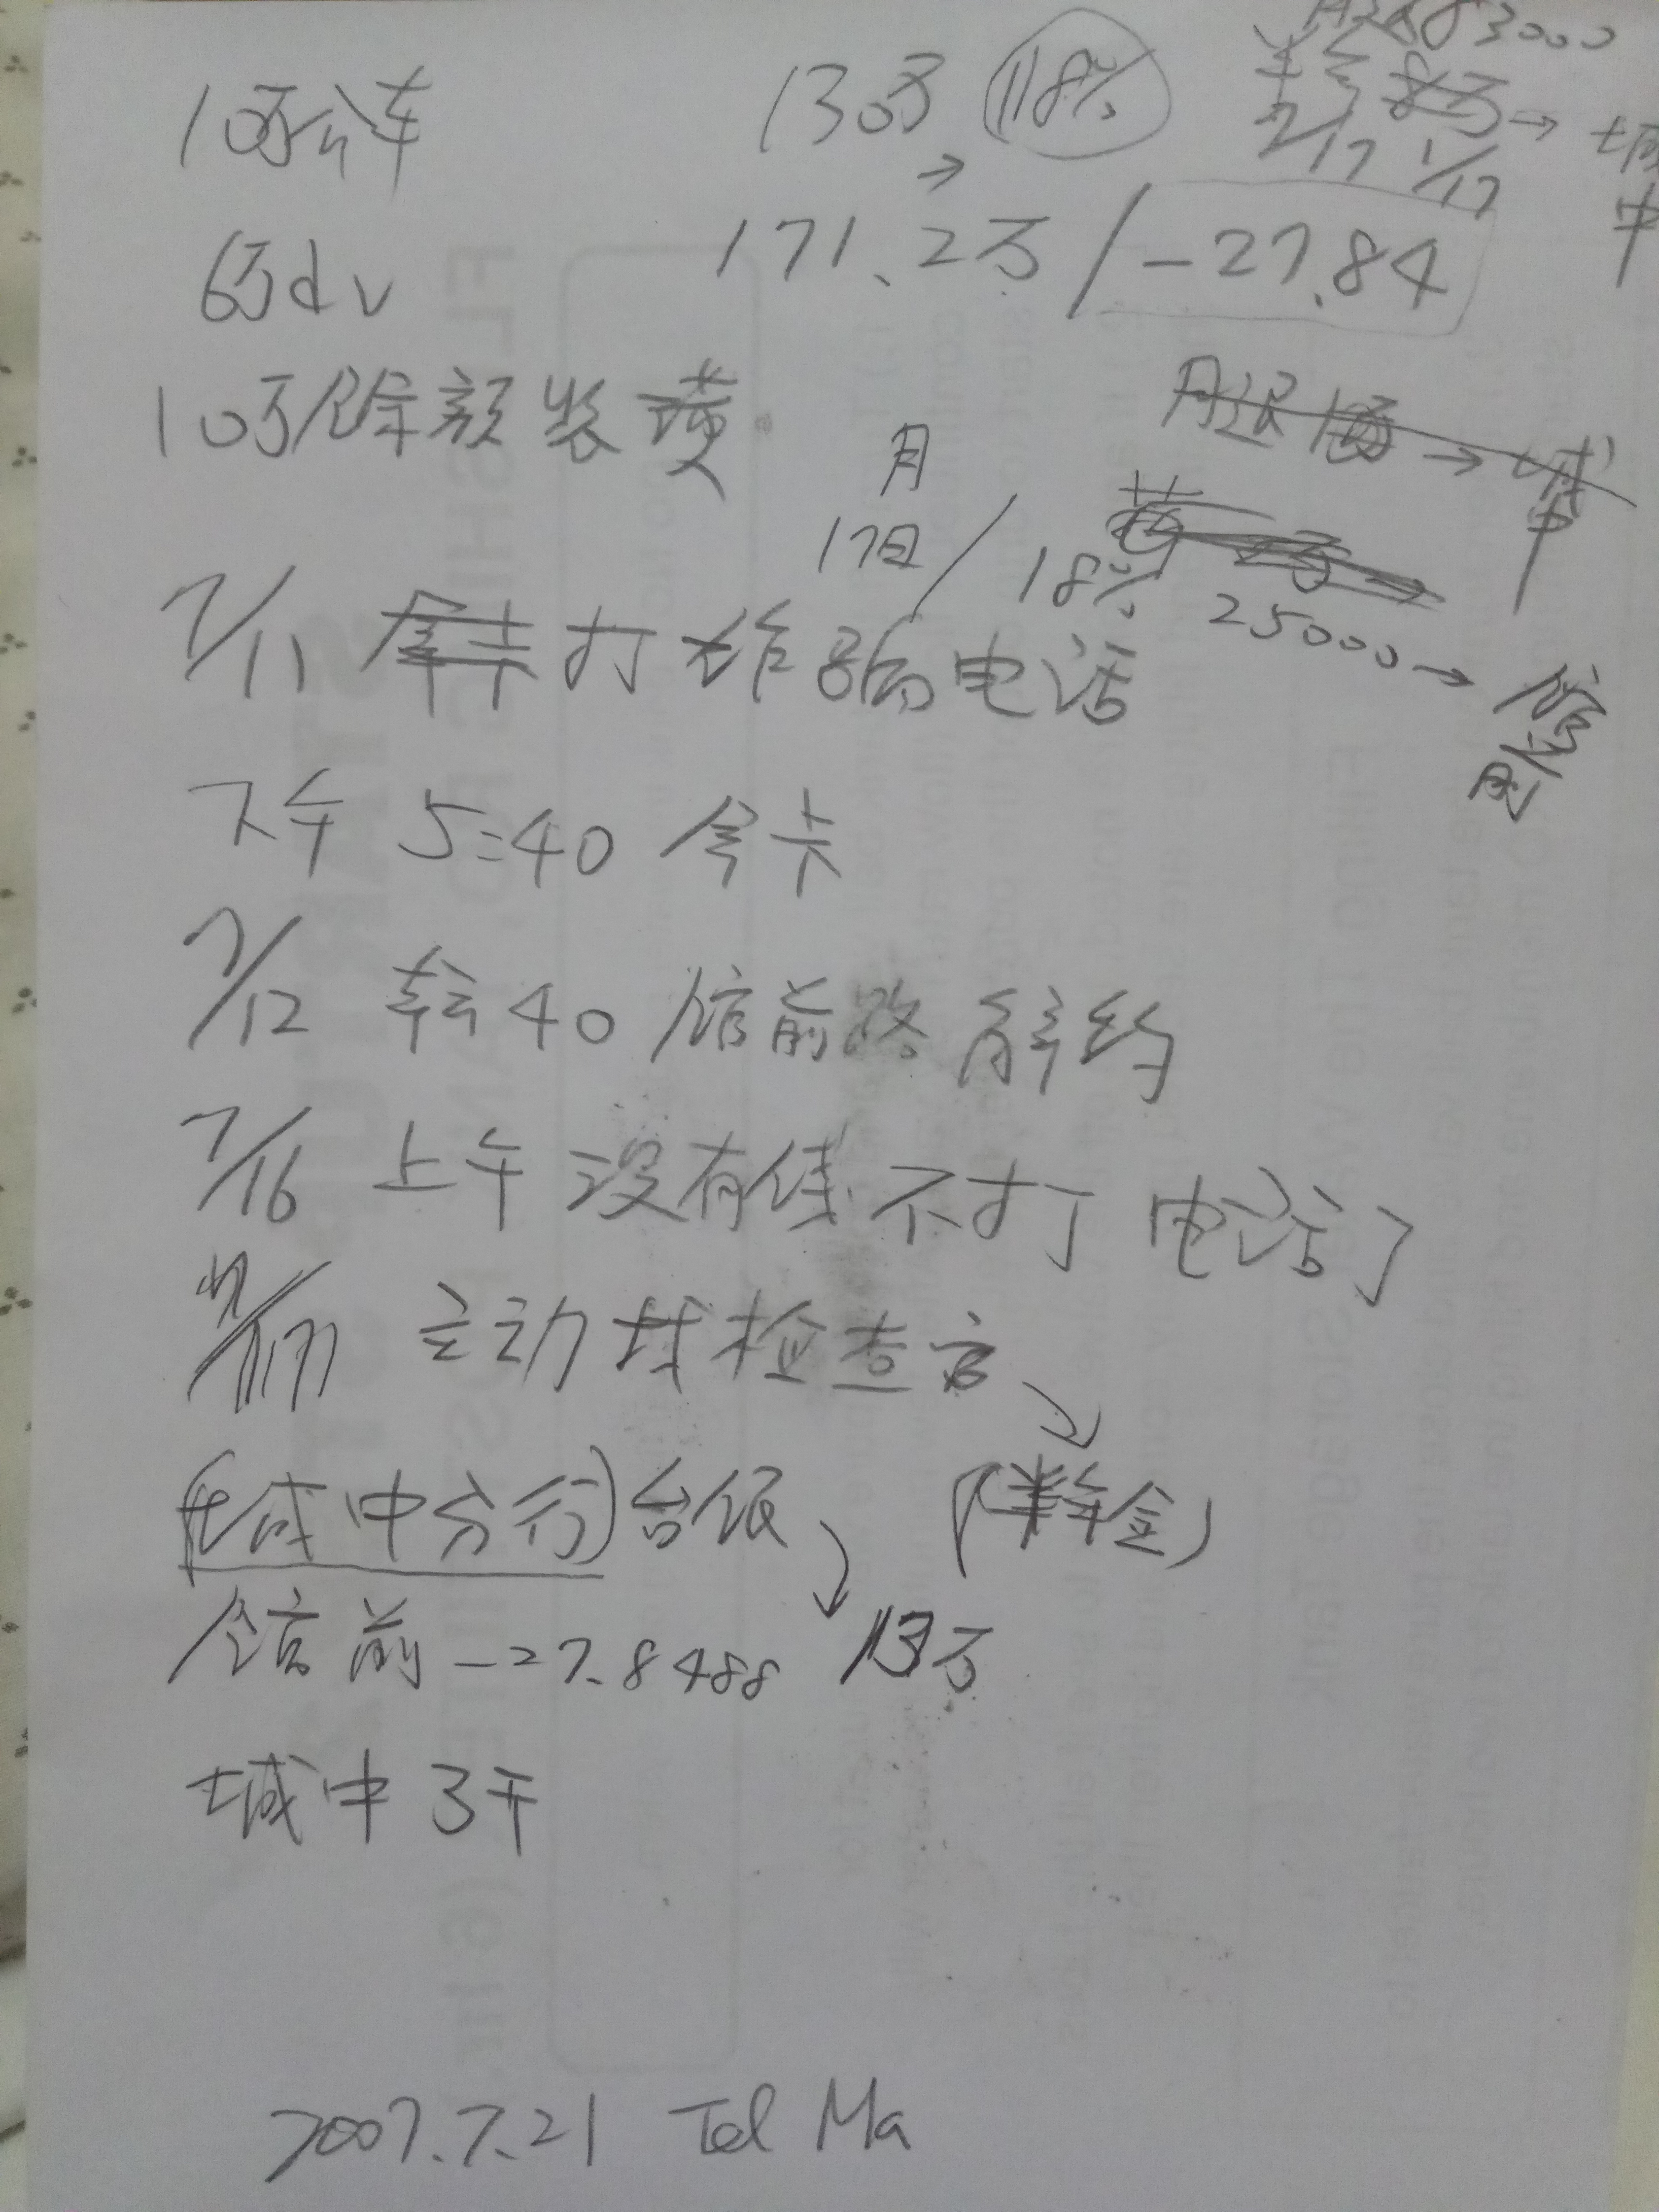 10万公车
130万 118%
→
171.2万/-27.84
3000
2/17 1/17
→ 城中
6万dv
10万余额装潢
月
17日/18%
→ 城中
25000→馆前
7/11 打给 电话
下午 5:40 令卡
7/12 转40 馆前路 解约
7/16 上午 没有钱 不打 电话了
主动找检查官
(城中分行)台银
馆前 -27.8488 13万
城中 3千
2007.7.21 Tel Ma